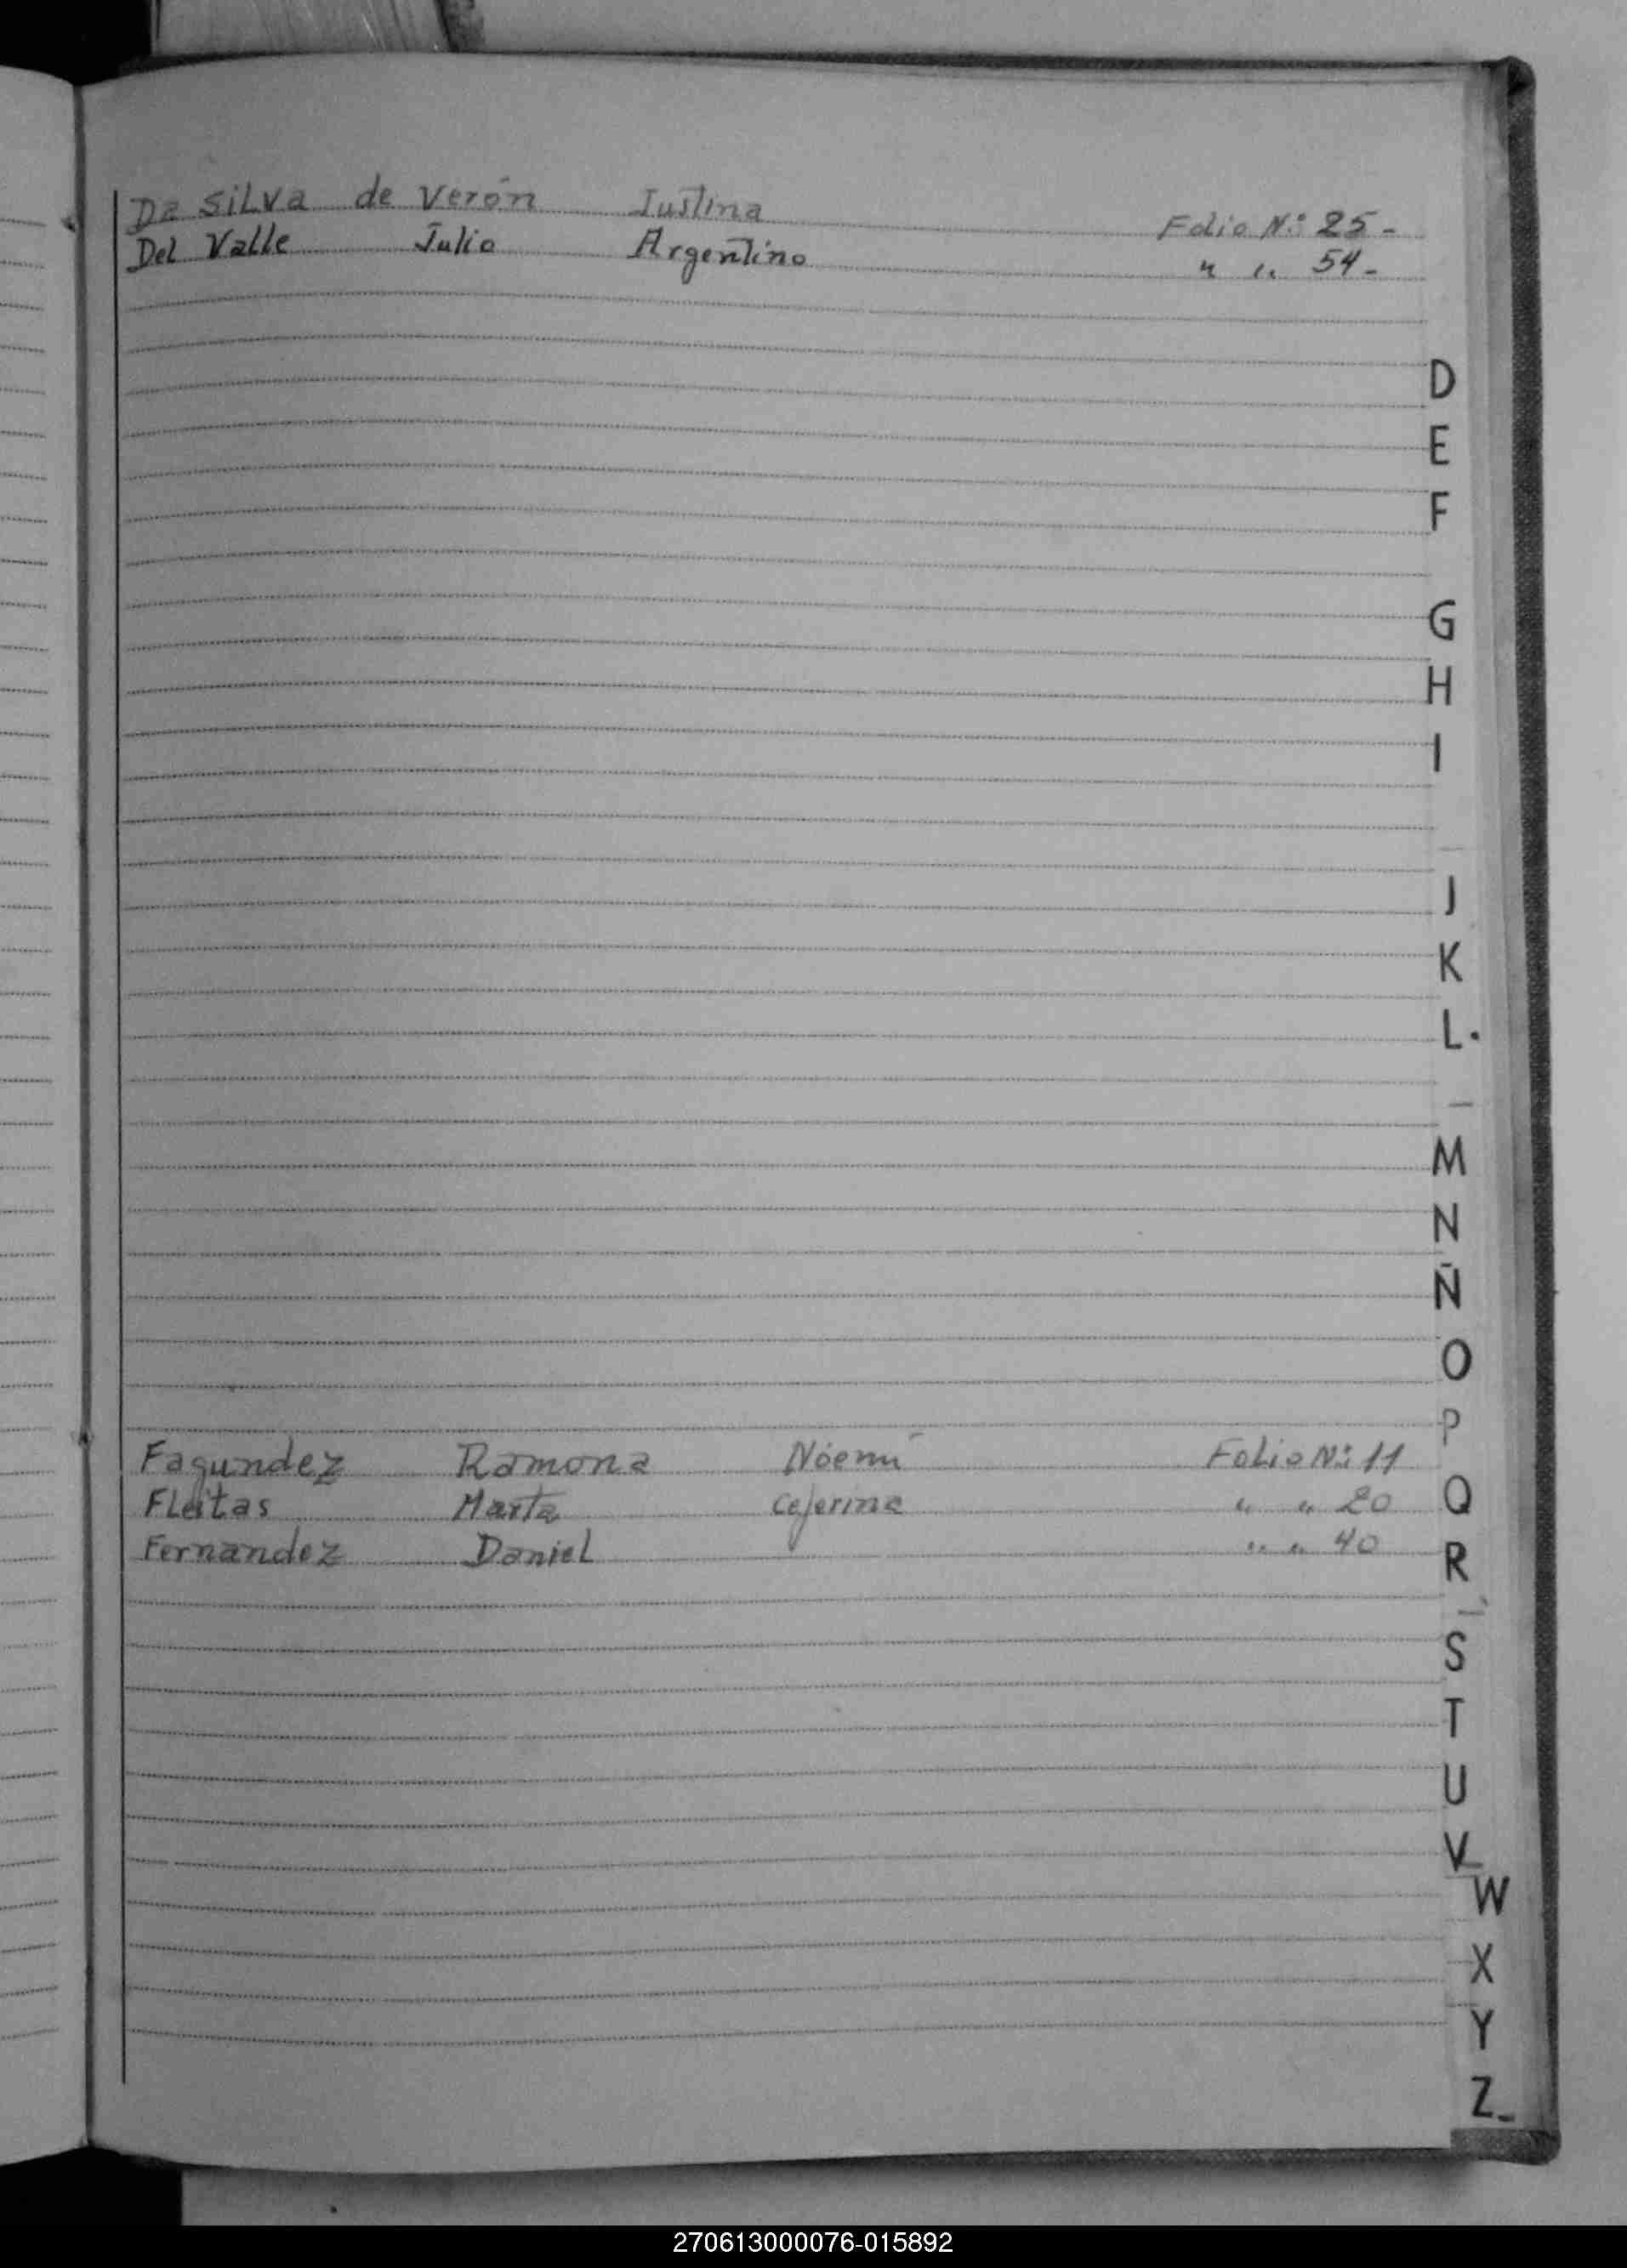 Da Silva de Verón Justina Folio Nº: 25-
Del Valle Julio Argentino " " 54-
D
E
F
G
H
I
J
K
L.
M
N
Ñ
O
P
Fagundez Ramona Nóemi Folio Nº: 11
Q
Fleitas Marta Ceferina " " 20
R
Fernandez Daniel " " 40
S
T
U
V
W
X
Y
Z
270613000076-015892